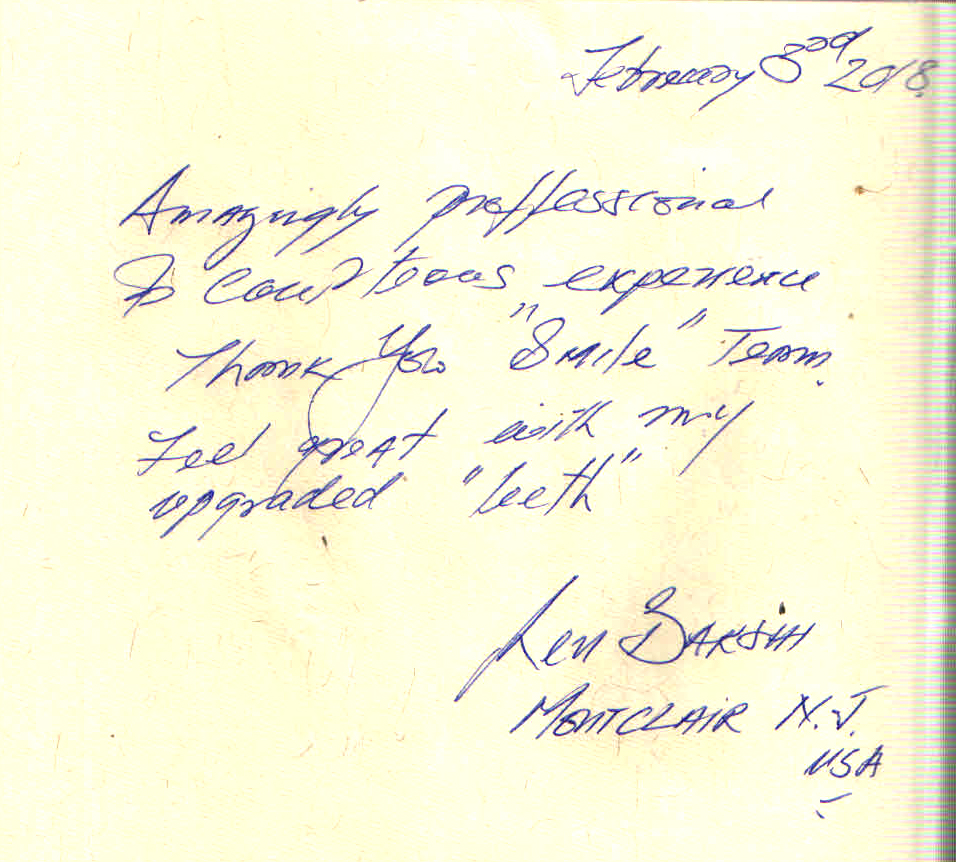 February 3rd 2018.
Amazingly proffessional
& Courteous experience
Thank You "Smile" Team.
Feel great with my
upgraded "teeth"
Ken BAKSHI
MONTCLAIR N.J.
USA